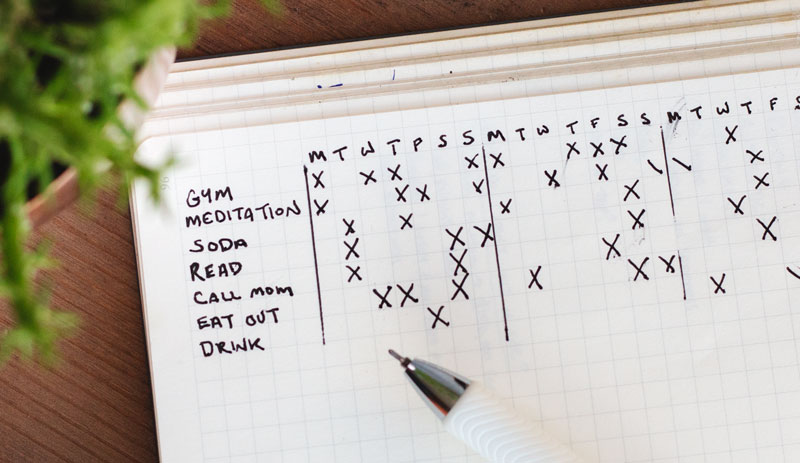 M T W T P S S M T W T F S S M T W T F S
GYM
MEDITATION
SODA
READ
CALL MOM
EAT OUT
DRINK